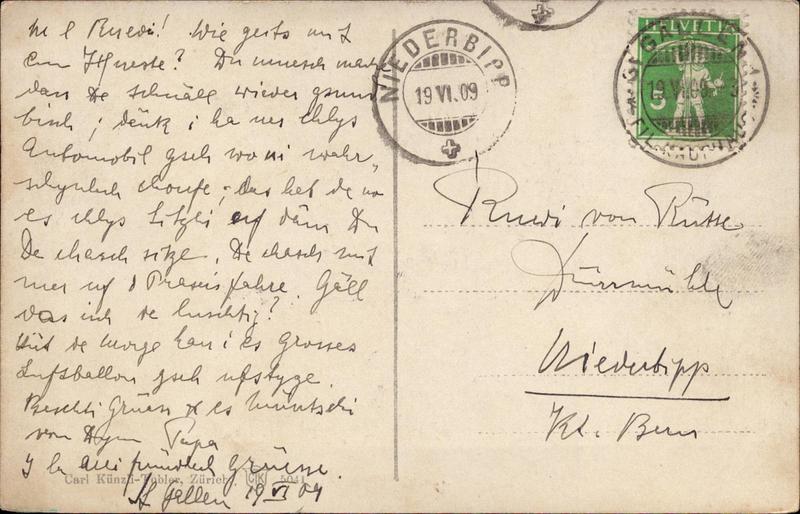 M l Ruedi! Wie gehts mit
em Hueste? Du muesch mache
dass De schnäll wieder gsund
bisch; dänk i ha nes chlys
Automobil gseh wo ni wahr-
schynlich choufe; das het de no
es chlys Sitzli uf däm Du
De chasch sitze. De chasch mit
mer uf d Praxis fahre. Gäll
das isch de luschtig?
Hüt de Morge han i es grosses
Luftballon gseh ufstyge.
Beschti Grüess & es Müntschi
von Dym Papa
Grüsse.
St Gallen 19 VI 09
Carl Künzli-Tobler, Zürich. CK 5041
NIEDERBIPP
19 VI. 09
HELVETIA
5
19 VI. 09
Ruedi von Rütte
Dürrmühle
Niederbipp
Kt. Bern